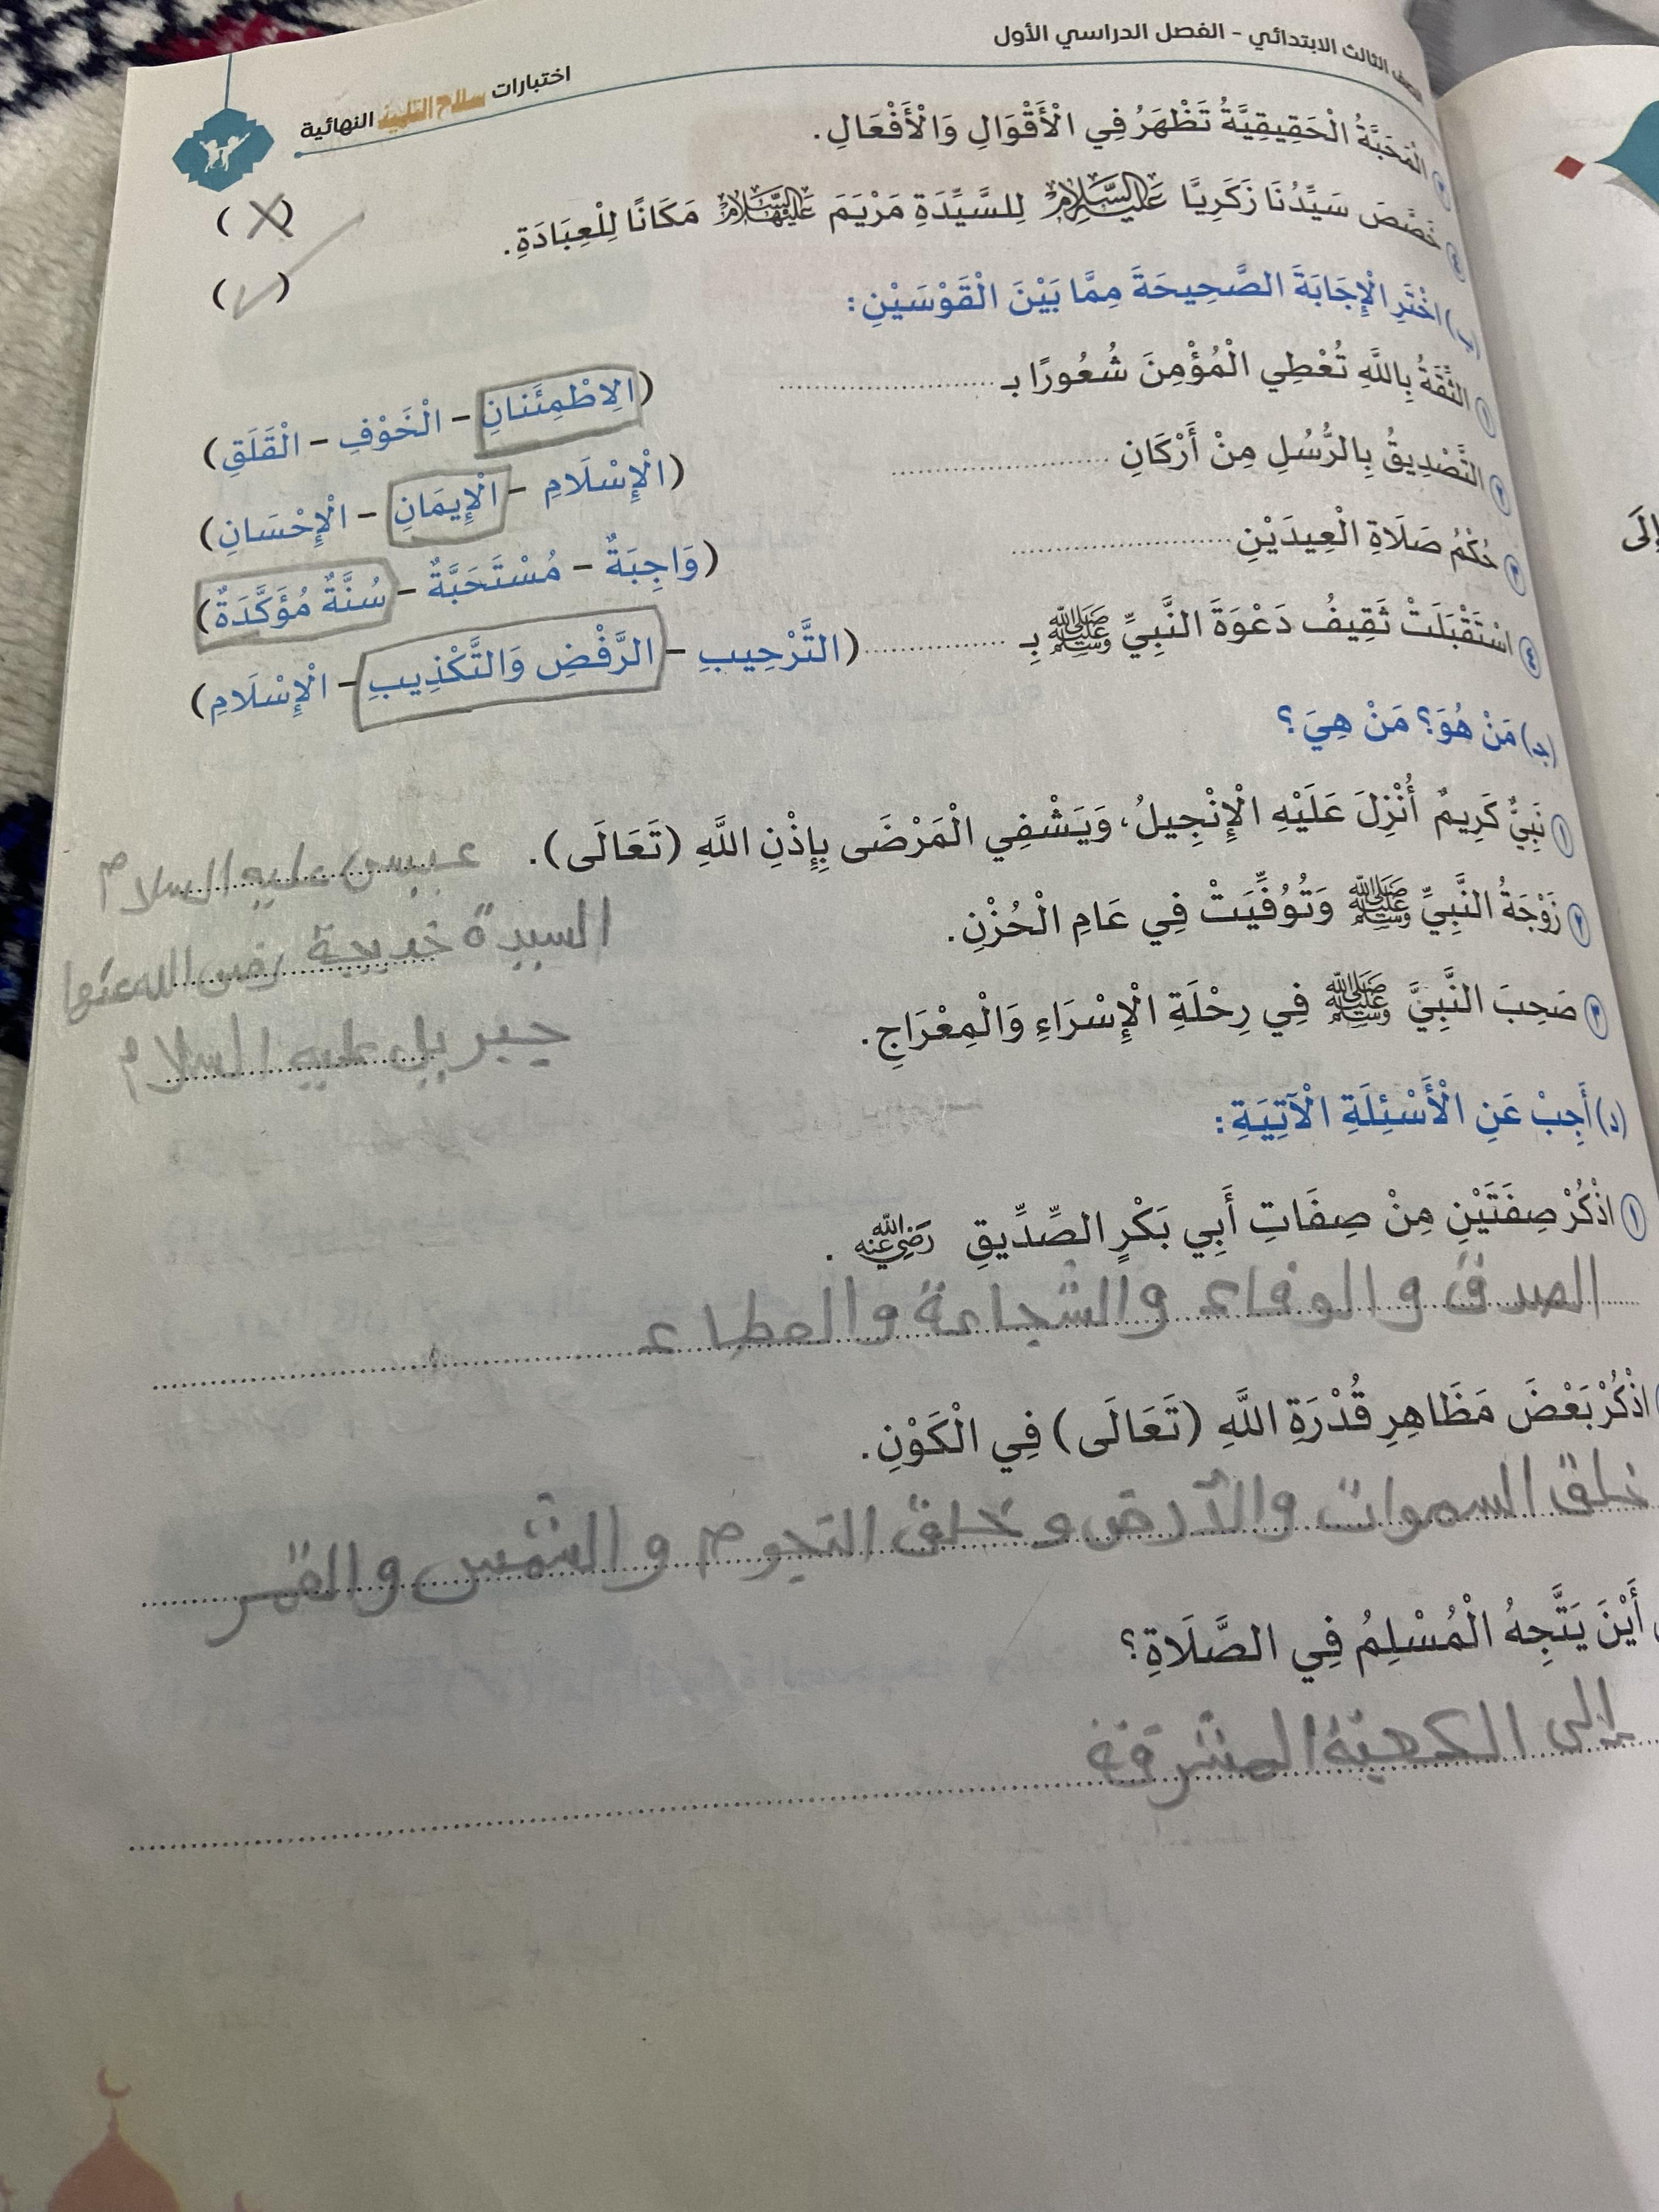 الصف الثالث الابتدائي - الفصل الدراسي الأول
اختبارات سلاح التلميذ النهائية
٣ الْمَحَبَّةُ الْحَقِيقِيَّةُ تَظْهَرُ فِي الْأَقْوَالِ وَالْأَفْعَالِ. (X)
٤ خَصَّصَ سَيِّدُنَا زَكَرِيَّا عَلَيْهِ السَّلَامُ لِلسَّيِّدَةِ مَرْيَمَ عَلَيْهَا السَّلَامُ مَكَانًا لِلْعِبَادَةِ. (✓)
(ب) اخْتَرِ الْإِجَابَةَ الصَّحِيحَةَ مِمَّا بَيْنَ الْقَوْسَيْنِ:
١ الثِّقَةُ بِاللَّهِ تُعْطِي الْمُؤْمِنَ شُعُورًا بـ .................... (الِاطْمِئْنَانِ - الْخَوْفِ - الْقَلَقِ)
٢ التَّصْدِيقُ بِالرُّسُلِ مِنْ أَرْكَانِ .................... (الْإِسْلَامِ - الْإِيمَانِ - الْإِحْسَانِ)
٣ حُكْمُ صَلَاةِ الْعِيدَيْنِ .................... (وَاجِبَةٌ - مُسْتَحَبَّةٌ - سُنَّةٌ مُؤَكَّدَةٌ)
٤ اسْتَقْبَلَتْ ثَقِيفُ دَعْوَةَ النَّبِيِّ ﷺ بِـ .................... (التَّرْحِيبِ - الرَّفْضِ وَالتَّكْذِيبِ - الْإِسْلَامِ)
(ج) مَنْ هُوَ؟ مَنْ هِيَ؟
١ نَبِيٌّ كَرِيمٌ أُنْزِلَ عَلَيْهِ الْإِنْجِيلُ، وَيَشْفِي الْمَرْضَى بِإِذْنِ اللَّهِ (تَعَالَى). عيسى عليه السلام
٢ زَوْجَةُ النَّبِيِّ ﷺ وَتُوُفِّيَتْ فِي عَامِ الْحُزْنِ. السيدة خديجة رضى الله عنها
٣ صَحِبَ النَّبِيَّ ﷺ فِي رِحْلَةِ الْإِسْرَاءِ وَالْمِعْرَاجِ. جبريل عليه السلام
(د) أَجِبْ عَنِ الْأَسْئِلَةِ الْآتِيَةِ:
١ اذْكُرْ صِفَتَيْنِ مِنْ صِفَاتِ أَبِي بَكْرٍ الصِّدِّيقِ رَضِيَ اللَّهُ عَنْهُ.
الصدق والوفاء والشجاعة والعطاء
اذْكُرْ بَعْضَ مَظَاهِرِ قُدْرَةِ اللَّهِ (تَعَالَى) فِي الْكَوْنِ.
خلق السموات والأرض و خلق النجوم والشمس والقمر
أَيْنَ يَتَّجِهُ الْمُسْلِمُ فِي الصَّلَاةِ؟
إلى الكعبة المشرفة
إلَى